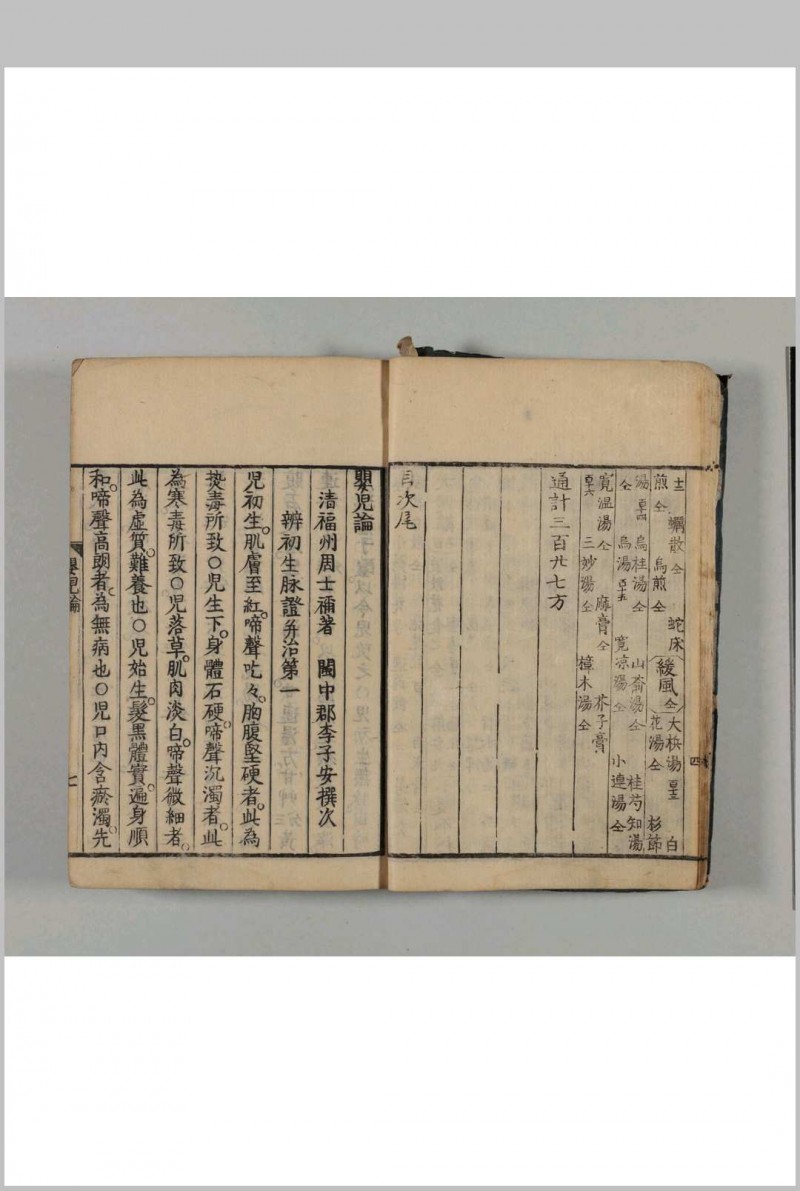 煎仝 烏煎仝 緩風仝 花湯仝 杉節
湯 烏桂湯仝 山䓤湯仝 桂芍知湯
仝 烏湯 寛涼湯仝 小連湯仝
寛温湯仝 麻膏仝 芥子膏
三妙湯仝 樟木湯仝
通計三百廾七方
目次尾
四
嬰児論
清福州周士禰著 閩中郡李子安撰次
辨初生脉證并治第一
児初生。肌膚至紅。啼聲吃々。胸腹堅硬者。此為
熱毒所致〇児生下。身體石硬。啼聲沉濁者。此
為寒毒所致〇児落草。肌肉淡白。啼聲微細者。
此為虚質。難養也〇児始生。髮黒體實。遍身順
和。啼聲高朗者。為無病也〇児口内含瘀濁。先
嬰児論